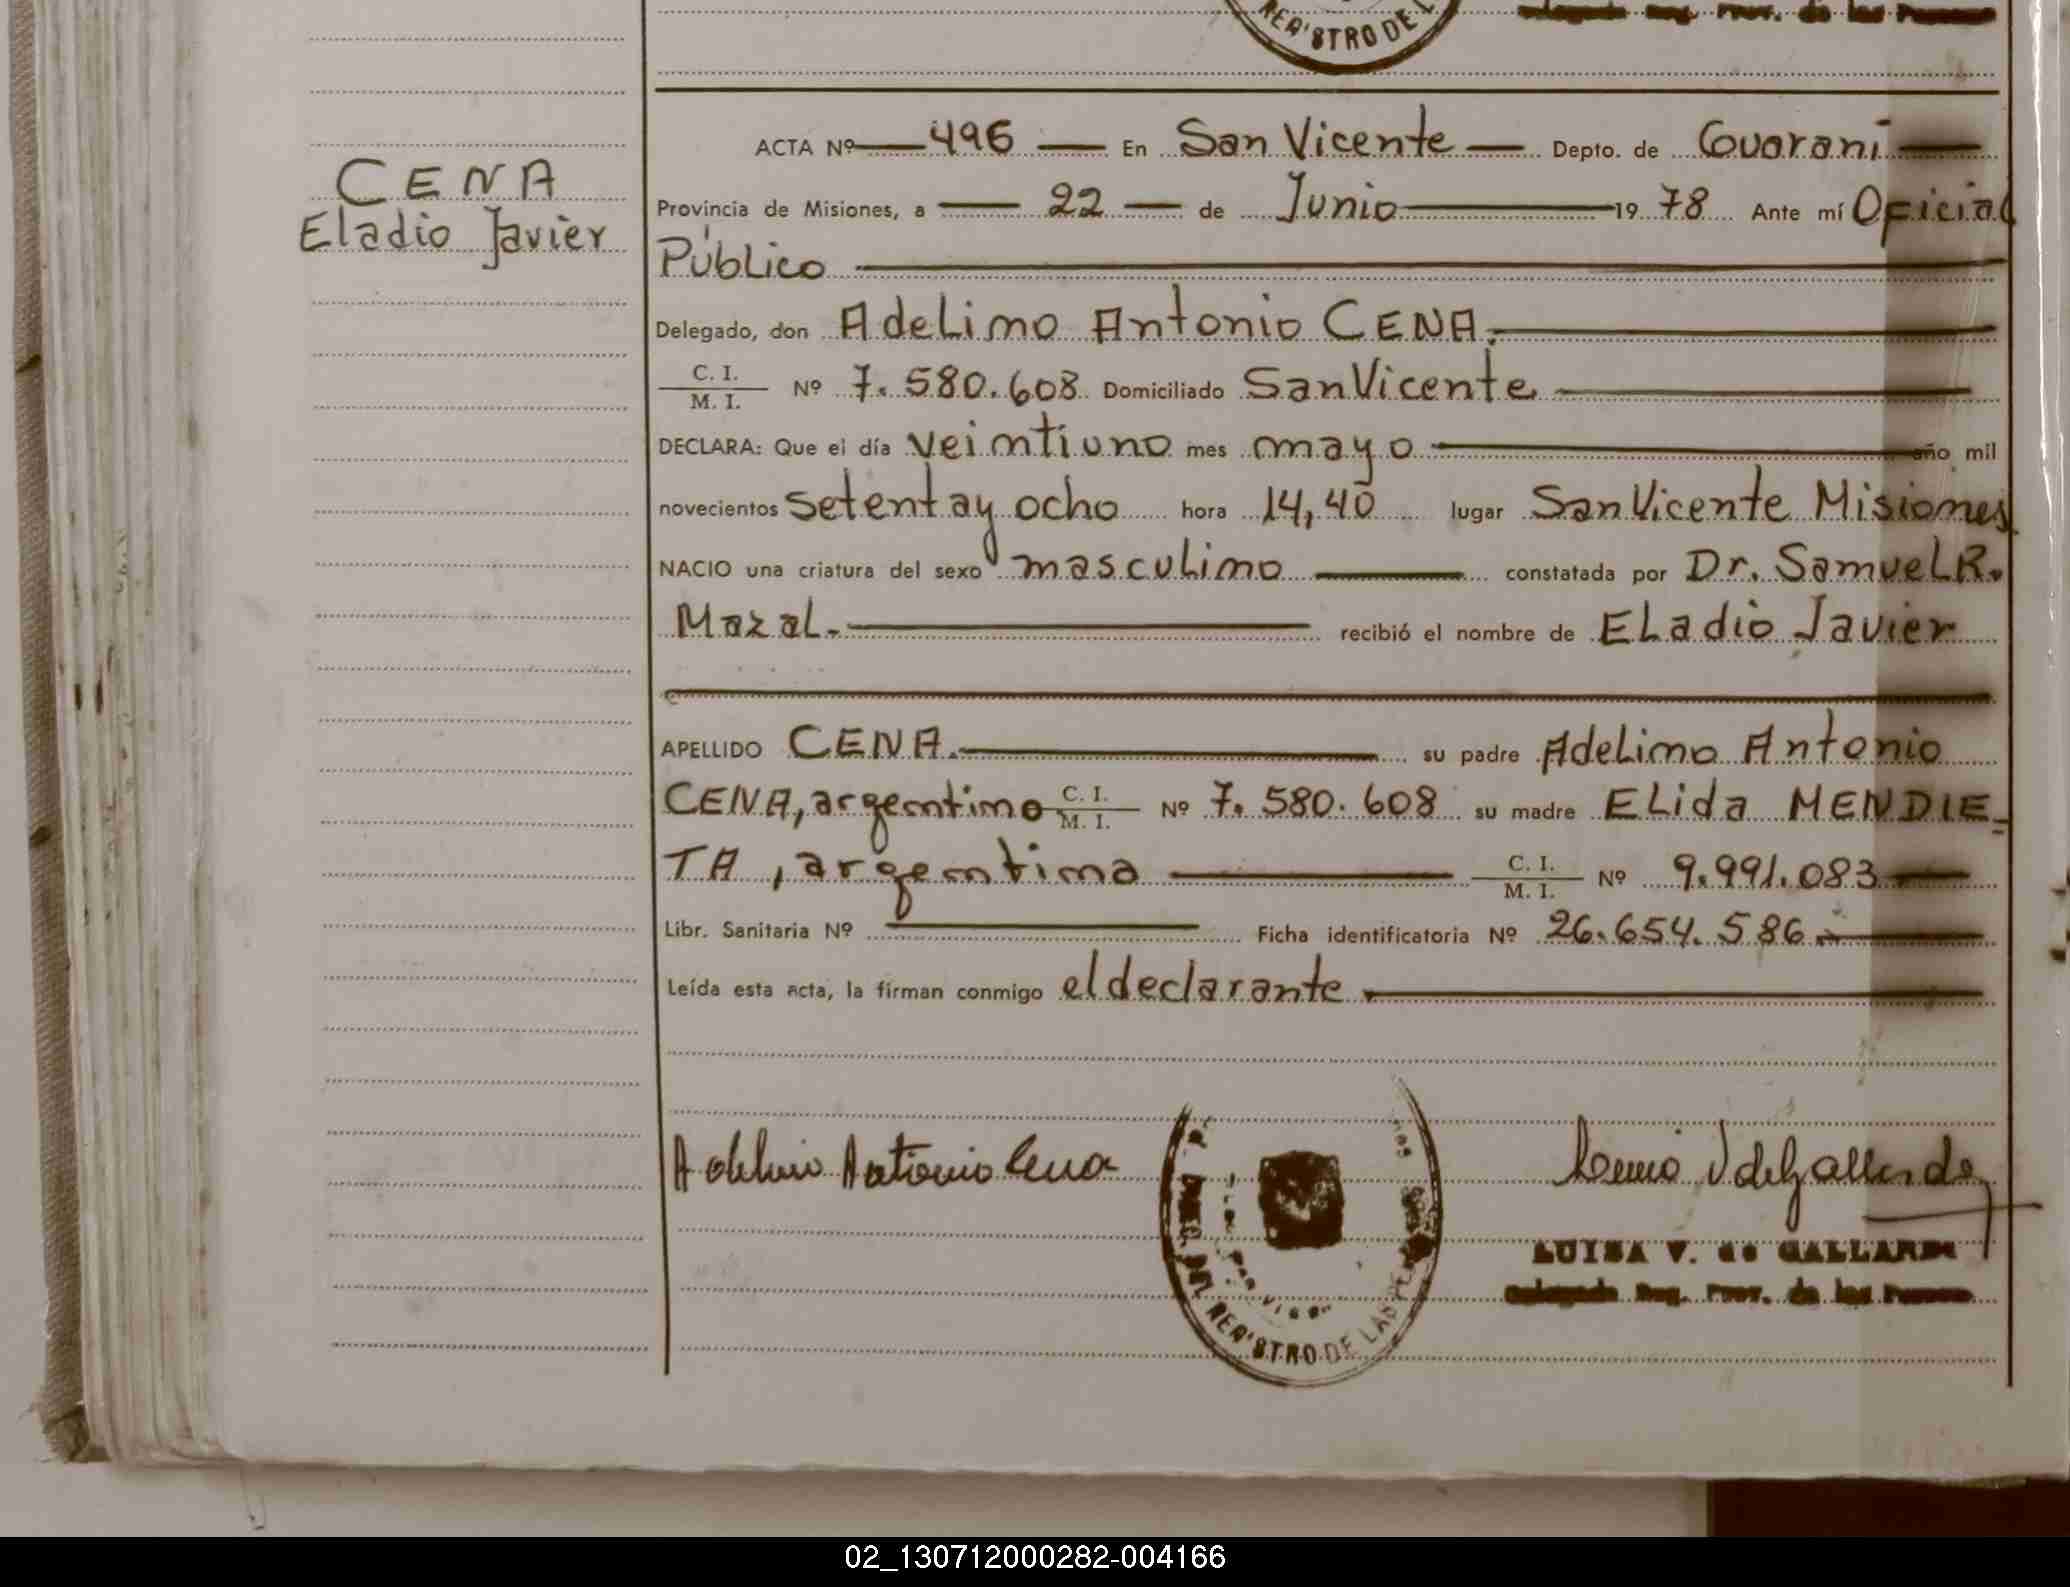 REG'STRO DE L
Delegado Reg. Prov. de las Personas
CENA
Eladio Javier
ACTA Nº 496 En San Vicente Depto. de Guarani
Provincia de Misiones, a 22 de Junio 1978 Ante mí Oficial
Público
Delegado, don Adelimo Antonio CENA.
C. I. / M. I. Nº 7.580.608 Domiciliado San Vicente
DECLARA: Que el día veimtiuno mes mayo año mil
novecientos setenta y ocho hora 14,40 lugar San Vicente Misiones
NACIO una criatura del sexo masculimo constatada por Dr. Samuel R.
Mazal. recibió el nombre de Eladio Javier
APELLIDO CENA. su padre Adelimo Antonio
CENA, argemtimo C. I. / M. I. Nº 7.580.608 su madre Elida MENDIE-
TA, argemtima C. I. / M. I. Nº 9.991.083
Libr. Sanitaria Nº Ficha identificatoria Nº 26.654.586.-
Leída esta acta, la firman conmigo el declarante.
Adelmio Antonio Cena
DEL REG'STRO DE LAS PE
LUISA V. de GALLARDO
Delegado Reg. Prov. de las Personas
02_130712000282-004166